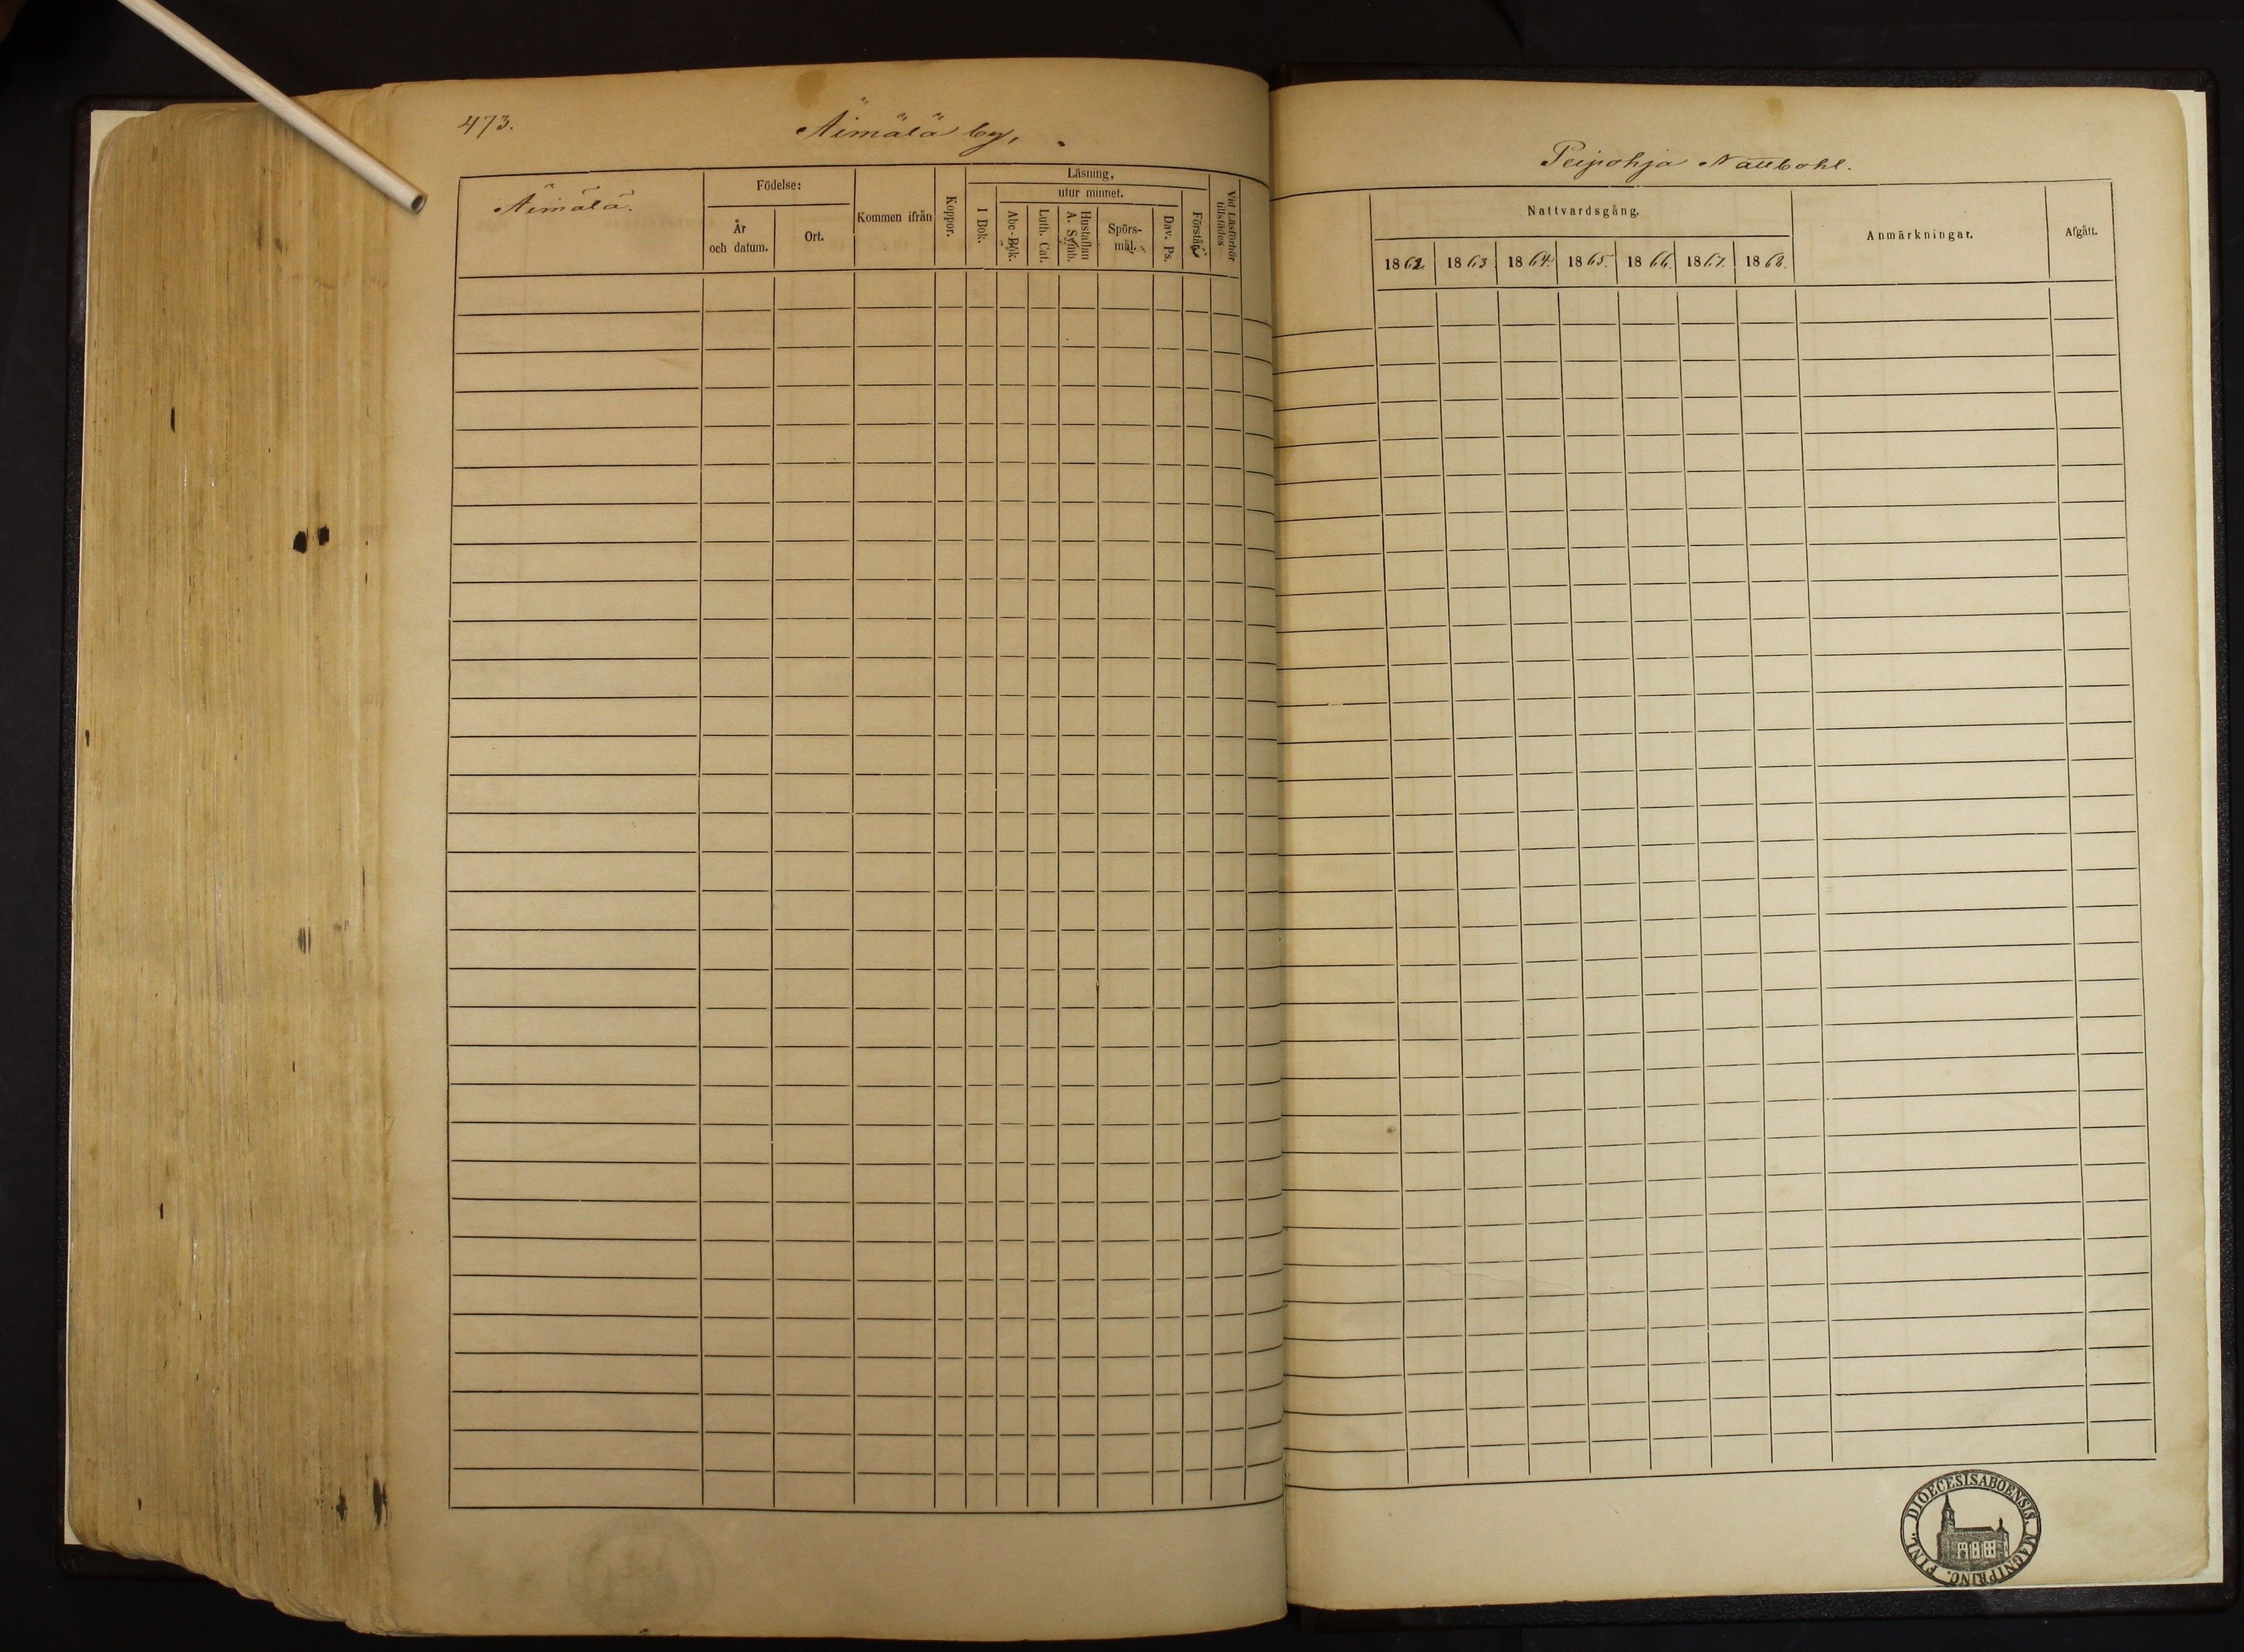 473.
Äimälä by,
Äimälä.
Födelse:
År
och datum.
Ort.
Kommen ifrån
Koppor.
Läsning,
utur minnet.
I Bok.
Abc-Bok.
Luth. Cat.
Hustaflan
A. Symb.
Spörs-
mål.
Dav. Ps.
Förstånd
Vid Läsförhör
tillstädes
Peipohja Nattbohl.
Nattvardsgång.
Anmärkningar.
Afgått.
1862. 1863 1864. 1865. 1866. 1867. 1868.
DIOECESIS ABOENSIS. MAGNI PRINC. FINL.